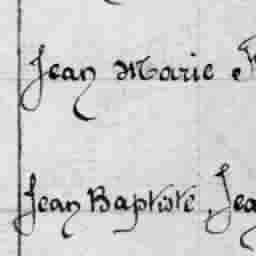 Jean Marie
Jean Baptiste, Jea